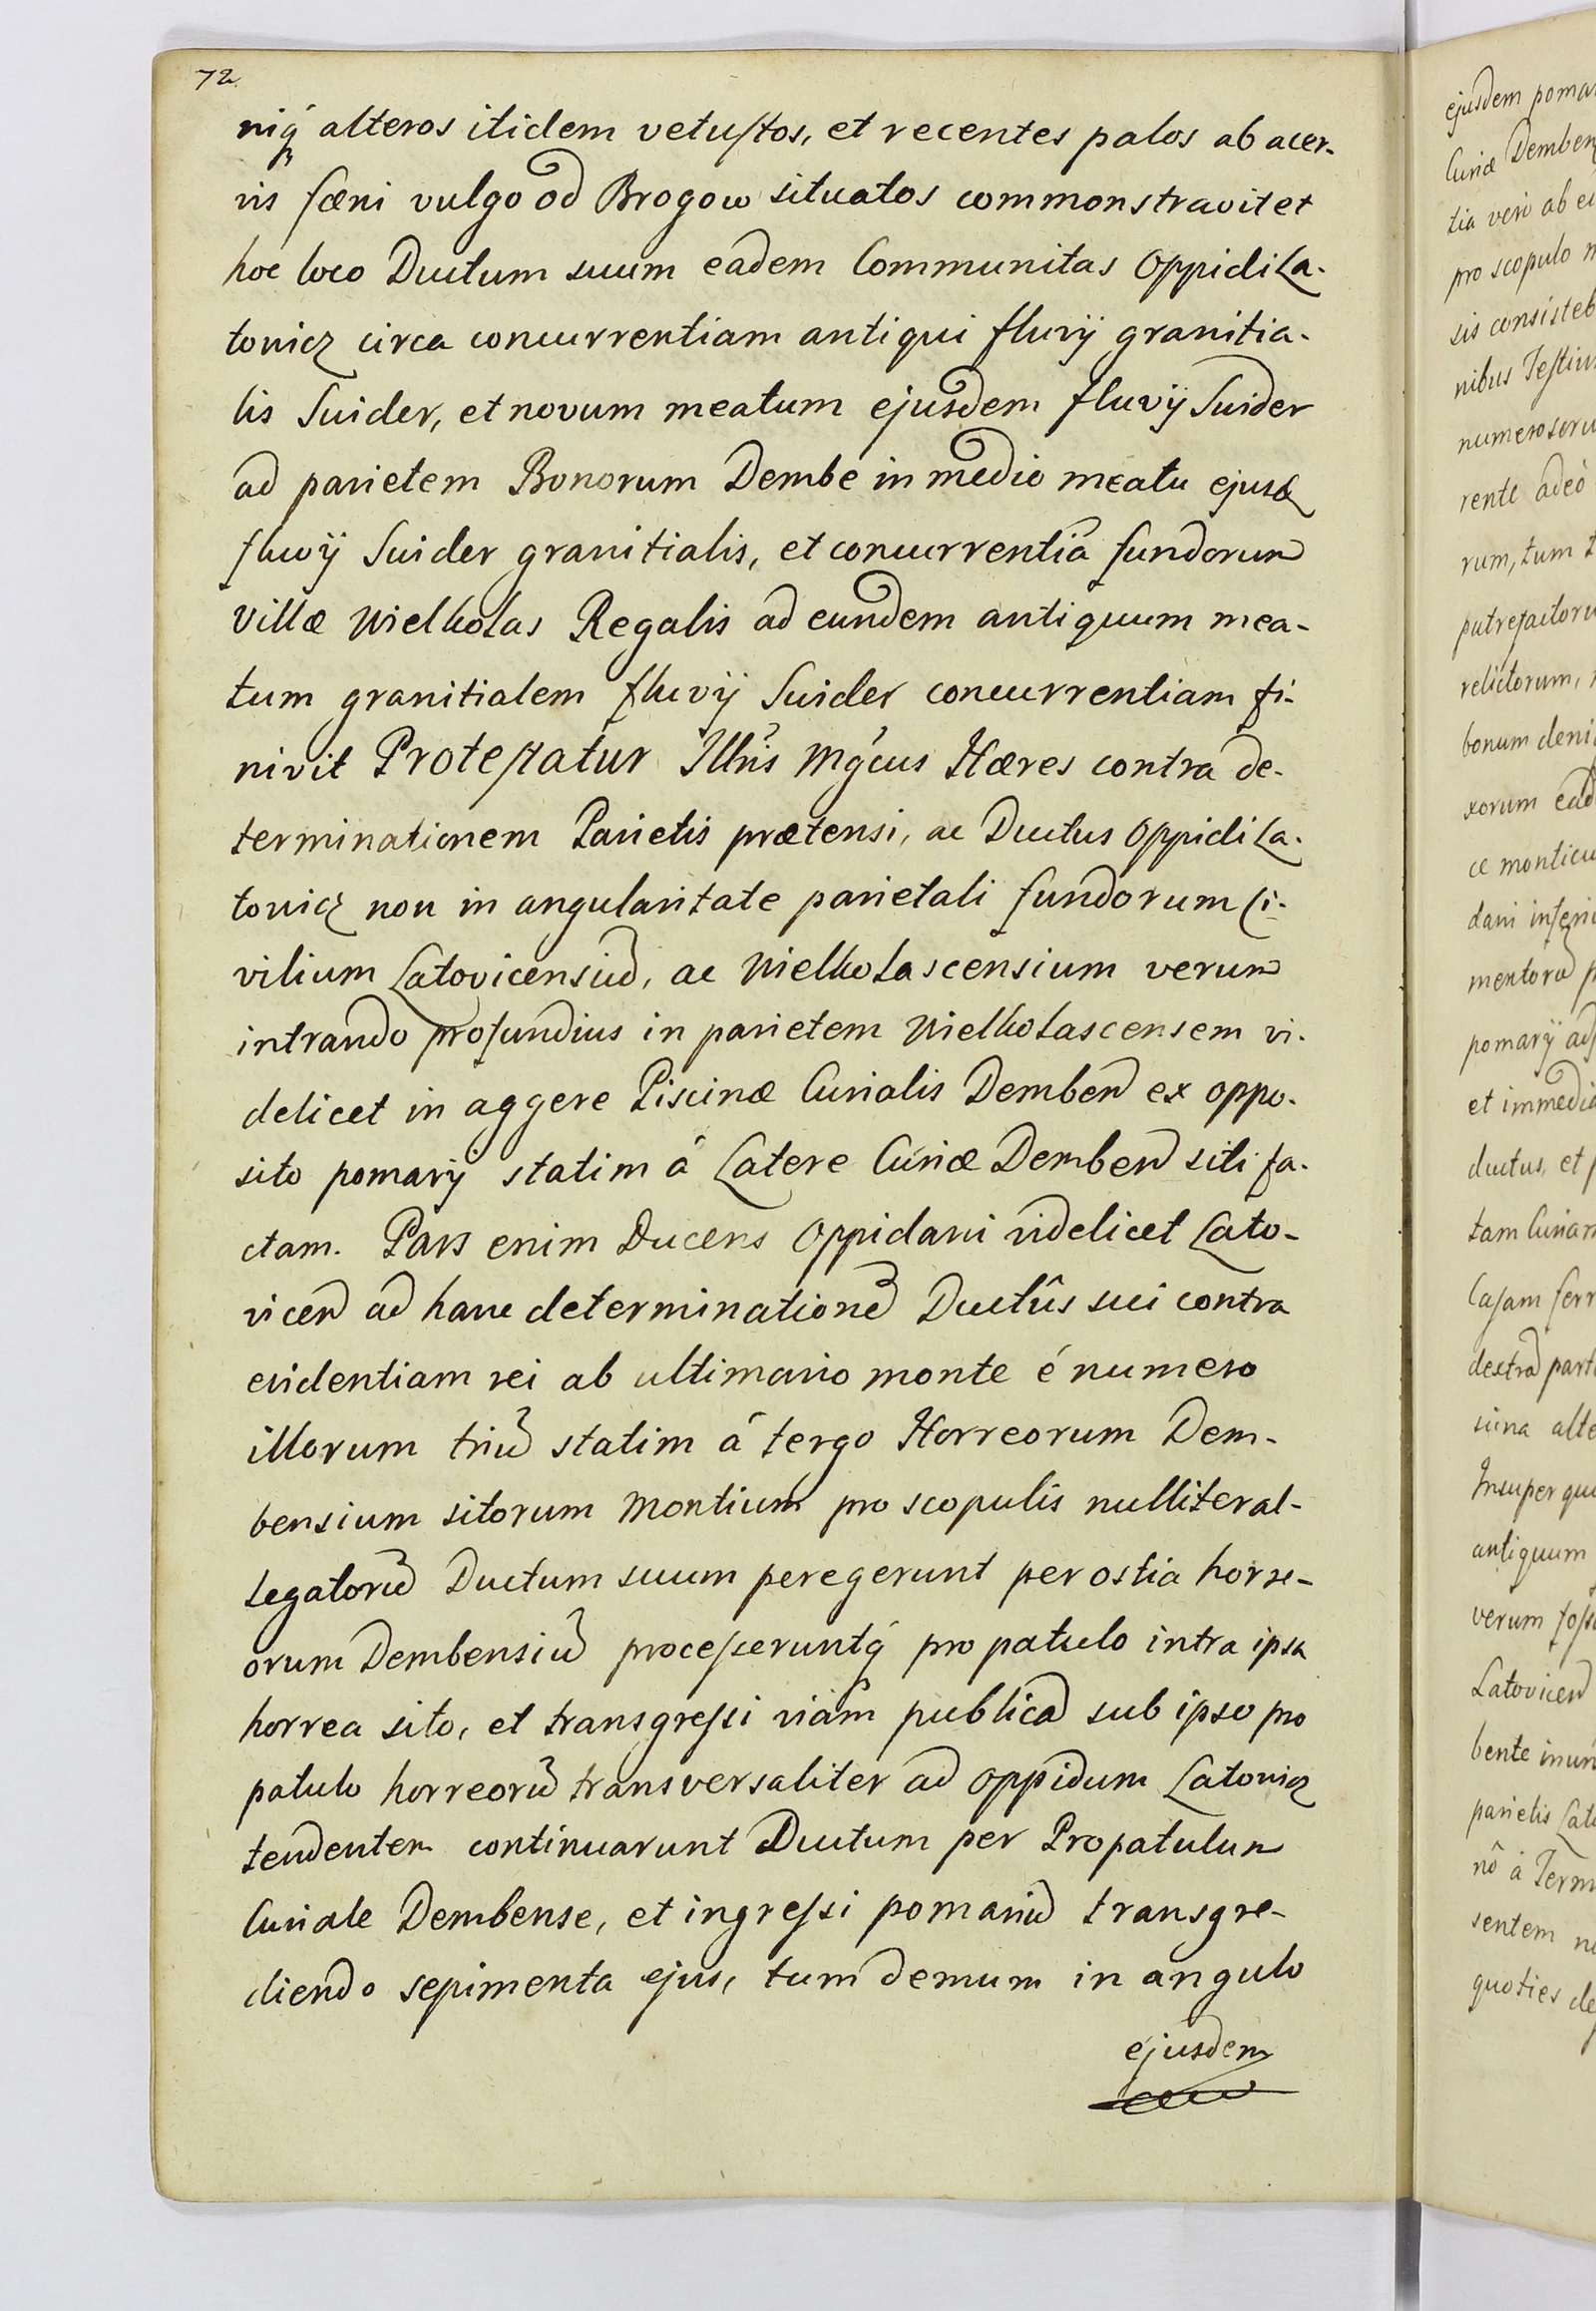 72
niq́ alteros itidem vetustos, et recentes palos ab acer-
vis fœni vulgo od Brogow situatos commonstravit et
hoc loco Ductum suum eadem Communitas Oppidi La-
tovicz circa concurrentiam antiqui fluvÿ granitia-
lis Suider, et novum meatum ejusdem fluvÿ Suider
ad parietem Bonorum Dembe in medio meatu ejusd
fluvÿ Suider granitialis, et concurrentiâ fundorum
Villæ Wielkolas Regalis ad eundem antiquum mea-
tum granitialem fluvÿ Suider concurrentiam fi-
nivit Protestatur Illr̃is Mg̃cus Hæres contra de-
terminationem Parietis prætensi, ac Ductus Oppidi La-
tovicz non in angularitate parietali fundorum Ci-
vilium Latovicensiũ, ac Wielkolascensium verum
intrando profundius in parietem Wielkolascensem vi-
delicet in aggere Piscinæ Curialis Demben ex oppo-
sito pomarÿ statim á Latere Curiæ Demben siti fa-
ctam. Pars enim Ducens Oppidani videlicet Lato-
vicen ad hanc determinationẽ Ductûs sui contra
evidentiam rei ab ultimario monte é numero
illorum triũ statim á tergo Horreorum Dem-
bensium sitorum Montium pro scopulis nulliter al-
legatorũ Ductum suum peregerunt per ostia horre-
orum Dembensiũ processeruntq́ pro patulo intra ipsa
horrea sito, et transgressi viam publicã sub ipso pro
patulo horreorũ transversaliter ad Oppidum Latovicz
tendentem continuarunt Ductum per Propatulum
Curiale Dembense, et ingressi pomariũ transgre-
diendo sepimenta ejus, tum demum in angulo
ejusdem
ejusdem poma
Curiæ Demben
tia vero ab
pro scopulo
sis consisteb
nibus Testiu
numerosoru
rente adeò
rum, tum
putrefactoru
relictorum,
bonum deni
xorum ead
ce monticu
dani inferi
mentorũ
pomarÿ ad
et immedia
ductus, et
tam Curiam
Casam ferr
dextrã part
alte
Insuper qu
antiquum
verum foss
Latovicen
bente inun
parietis Lat
nõ à Term
sentem
quoties de